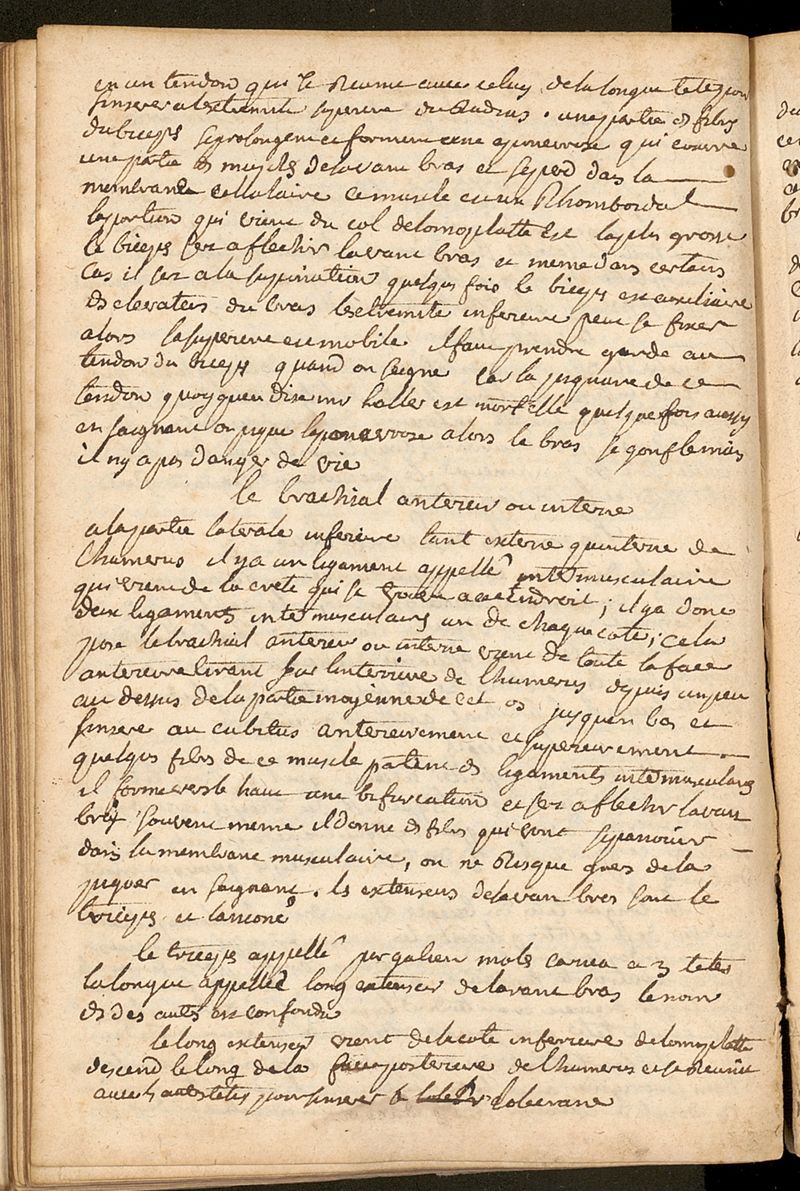 en un tendon qui se Reunit avec celuy de la longue tete pour
sinserer a lextremité superieure du Radius. une partie ds fibrs
du biceps se prolongent et forment une aponevrose qui couvre
une partie ds muscls de lavant bras et se perd dans la
membrane cellulaire ce muscle est un Rhomboidal
la portion qui vient du col de lomoplatte est la plus grosse
le biceps sert a flechir lavant bras et meme dans certains
cas il sert a la supination quelqus fois le biceps est auxiliaire
ds elevateurs du bras lextremite inferieure peut se fixer
alors la superieure est mobile il faut prendre garde au
tendon du biceps quand on saigne car la piquure de ce
tendon quoyquen dise mr haller est mortelle quelque fois aussy
en saignant on pique laponevrose alors le bras se gonfle mais
il ny a pas danger de vie
le brachial anterieur ou interne
a la partie laterale inferieure tant externe quinterne de
lhumerus il y a un ligament appellé intermusculaire
qui vient de la crete qui se trouve a cet endroit; il y a donc
deux ligaments intermusculairs un de chaque coté; cela
posé le brachial anterieur ou interne vient de toute la face
anterieure tirant sur linterieure de lhumerus depuis un peu
au dessus de la partie moyenne de cet os jusquen bas et
sinsere au cubitus anterieurement et superieurement
quelqus fibrs de ce muscle partent ds ligaments intermusculairs
il forme vers le haut une bifurcation et sert a flechir lavant
bras souvent meme il donne ds fibrs qui vont sepanouir
dans la membrane musculaire, on ne Risque gueres de la
piquer en saignant. ls extenseurs de lavan bras sont le
triceps et lanconé
le triceps appellé par galien mols carnea a 3 tetes
la longue appellée long extenseur de lavant bras le nom
ds des autrs est confondu
le long extenseur vient de la cote inferieure de lomoplatte
descend le long de la face posterieure de lhumerus et se Reunit
avec ls autrs tetes pour sinserer a lolecrane